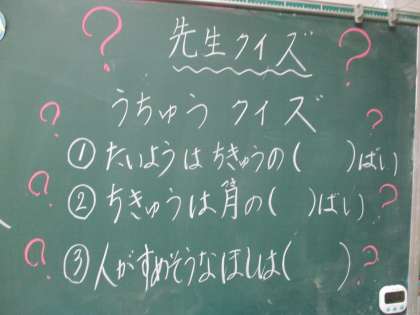 先生クイズ
うちゅう クイズ
①たいようはちきゅうの( )ばい
②ちきゅうは月の( )ばい
③人がすめそうなほしは( )
? ? ? ? ? ? ? ?